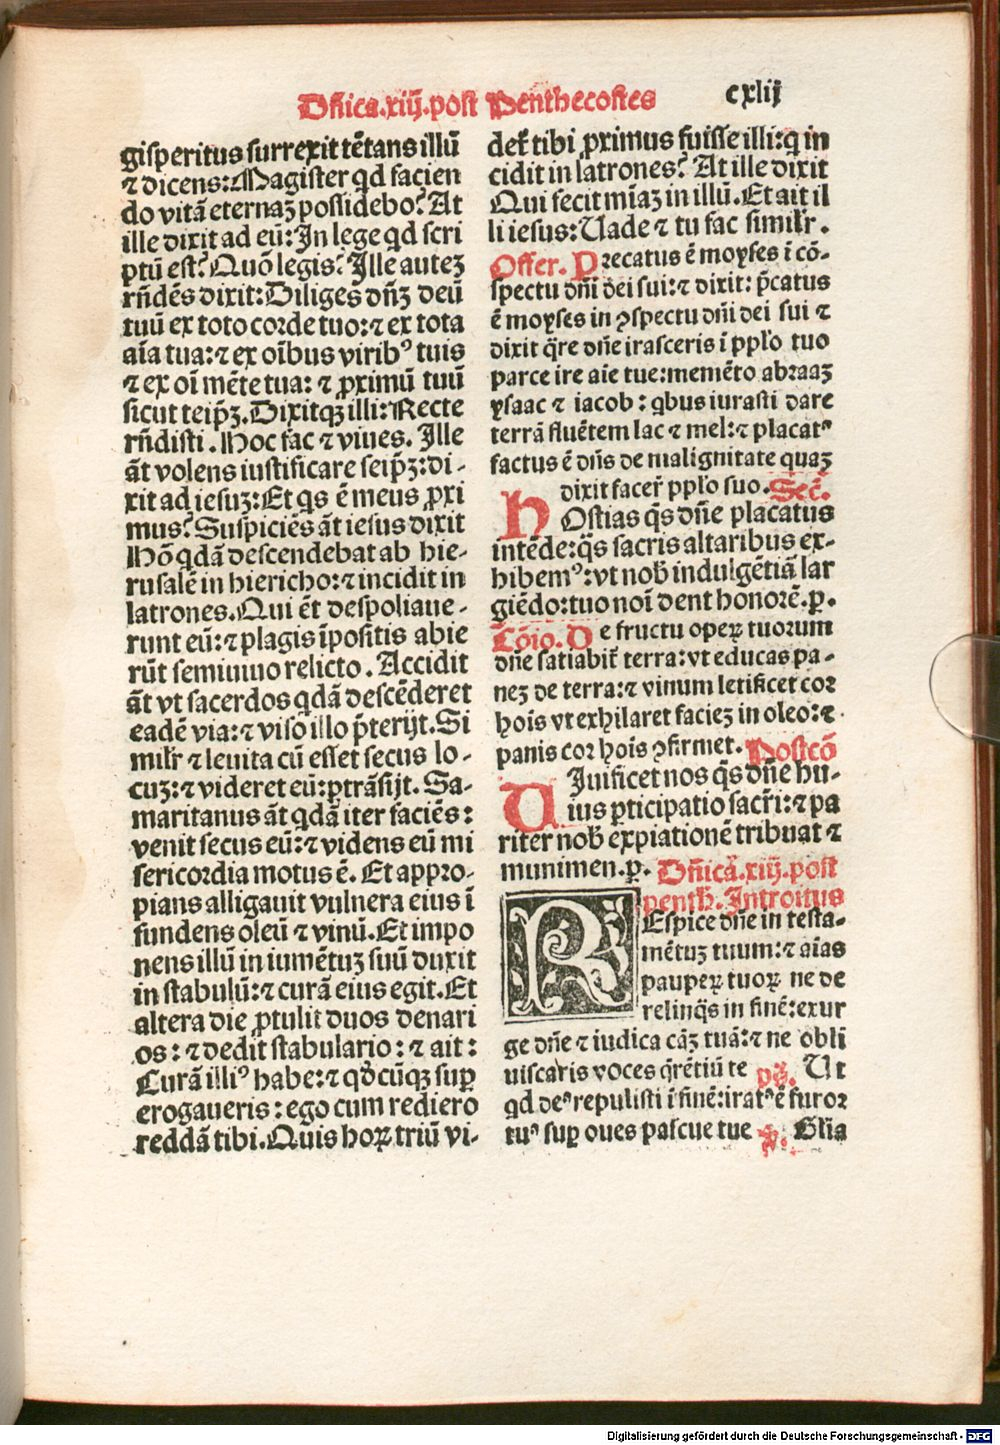 Dñica.xiij.post Penthecostes cxlij
gisperitus surrexit tētans illū
⁊ dicens: Magister qd facien
do vitā eternaꝫ possidebo? At
ille dixit ad eū: In lege qd scri
ptū est? Quō legis? Ille auteꝫ
rñdēs dixit: Diliges dñꝫ deū
tuū ex toto corde tuo: ⁊ ex tota
aīa tua: ⁊ ex oībus viribꝰ tuis
⁊ ex oī mēte tua: ⁊ ꝓximū tuū
sicut teip̄ꝫ. Dixitqꝫ illi: Recte
rñdisti. Hoc fac ⁊ viues. Ille
āt volens iustificare seip̄ꝫ: di-
xit ad iesuꝫ: Et qs ē meus ꝓxi
mus? Suspiciēs āt iesus dixit
Hō qdā descendebat ab hie-
rusalē in hiericho: ⁊ incidit in
latrones. Qui ēt despoliaue-
runt eū: ⁊ plagis īpositis abie
rūt semiuiuo relicto. Accidit
āt vt sacerdos qdā descēderet
eadē via: ⁊ viso illo p̄terijt. Si
milr ⁊ leuita cū esset secus lo-
cuꝫ: ⁊ videret eū: ptrāsijt. Sa-
maritanus āt qdā iter faciēs:
venit secus eū: ⁊ videns eū mi
sericordia motus ē. Et appro-
pians alligauit vulnera eius ī
fundens oleū ⁊ vinū. Et impo
nens illū in iumētuꝫ suū duxit
in stabulū: ⁊ curā eius egit. Et
altera die ꝓtulit duos denari
os: ⁊ dedit stabulario: ⁊ ait:
Curā illiꝰ habe: ⁊ qdcūqꝫ suꝑ
erogaueris: ego cum rediero
reddā tibi. Quis hoꝝ triū vi-
det tibi ꝓximus fuisse illi: q in
cidit in latrones? At ille dixit
Qui fecit mīaꝫ in illū. Et ait il
li iesus: Uade ⁊ tu fac similr.
Offer. Precatus ē moyses ī cō-
spectu dñi dei sui: ⁊ dixit: p̄catus
ē moyses in ꝯspectu dñi dei sui ⁊
dixit q̄re dñe irasceris ī pplo tuo
parce ire aīe tue: memēto abraaꝫ
ysaac ⁊ iacob: qbus iurasti dare
terrā fluētem lac ⁊ mel: ⁊ placatꝰ
factus ē dñs de malignitate quaꝫ
dixit facer̄ pplo suo. Secr̄.
HOstias q̄s dñe placatus
intēde: q̄s sacris altaribus ex-
hibemꝰ: vt nob̄ indulgētiā lar
giēdo: tuo noī dent honorē. ꝑ.
Cōio. De fructu operꝝ tuorum
dñe satiabit̄ terra: vt educas pa-
neꝫ de terra: ⁊ vinum letificet cor
hois vt exhilaret facieꝫ in oleo: ⁊
panis cor hois ꝯfirmet. Postcō
UIuificet nos q̄s dñe hu-
ius ꝑticipatio sacri: ⁊ pa
riter nob̄ expiationē tribuat ⁊
munimen. ꝑ. Dñicā.xiij.post
penth. Introitus
REspice dñe in testa-
mētuꝫ tuum: ⁊ aīas
pauꝑeꝝ tuoꝝ ne de
relinq̄s in finē: exur
ge dñe ⁊ iudica cāꝫ tuā: ⁊ ne obli
uiscaris voces q̄rētiū te ps̄. Ut
qd deꝰ repulisti ī finē: iratꝰ ē furor
tuꝰ suꝑ oues pascue tue ꝟ. Glīa
Digitalisierung gefördert durch die Deutsche Forschungsgemeinschaft - DFG